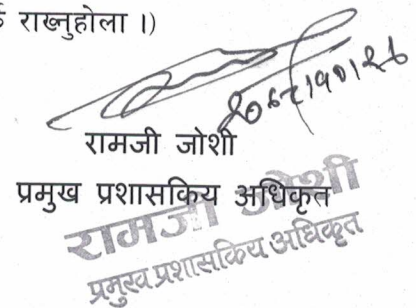 राख्नुहोला ।)
रामजी जोशी
प्रमुख प्रशासकिय अधिकृत
रामजी जोशी
प्रमुख प्रशासकिय अधिकृत